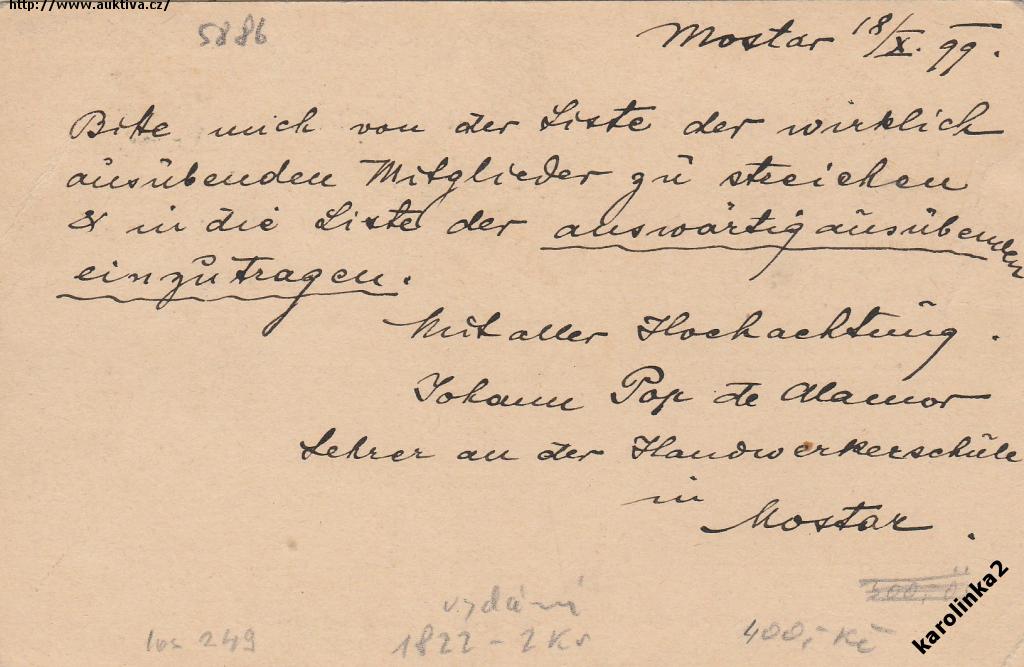 http://www.auktiva.cz/
5886
Mostar 18/X. 99.
Bitte mich von der Liste der wirklich
ausübenden Mitglieder zu streichen
& in die Liste der auswärtig ausübenden
einzutragen.
Mit aller Hochachtung.
Johann Pop de Alamor
Lehrer an der Handwerkerschule
in
Mostar.
300,-
vydání
los 249
1822 - 2 Ks
400,- Kč
karolinka2